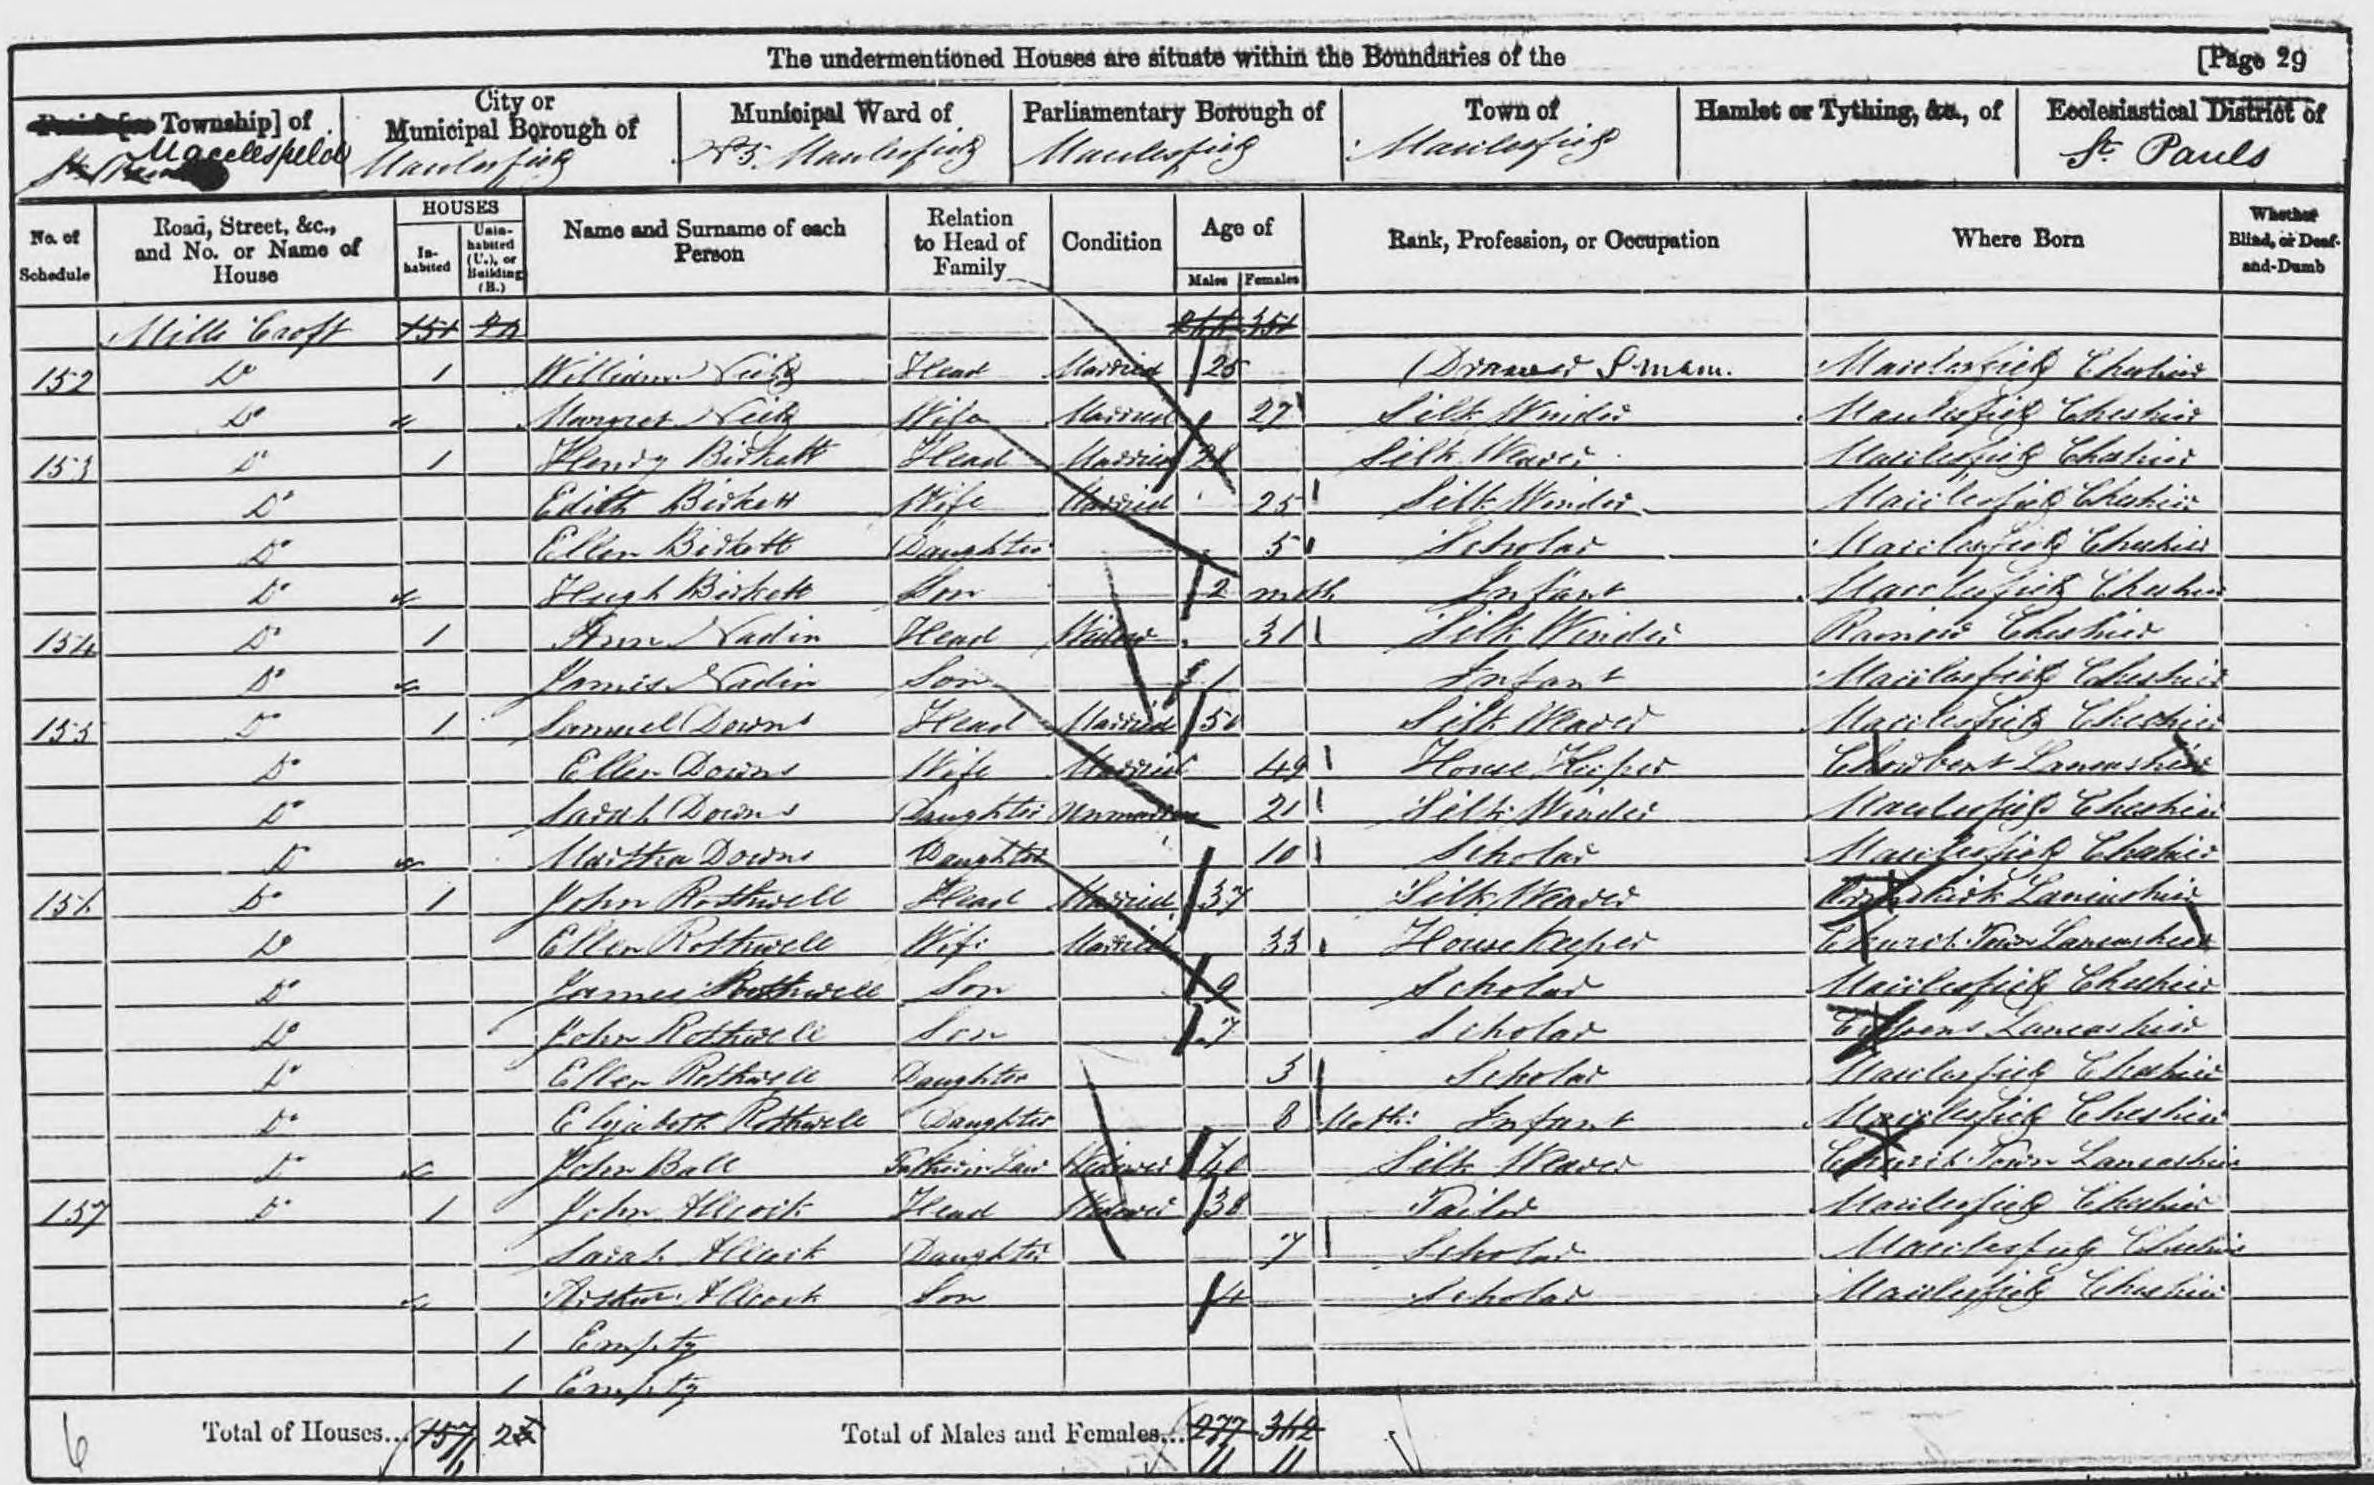 The undermentioned Houses are situate within the Boundaries of the [Page 29
Parish [or Township] of City or Municipal Borough of Municipal Ward of Parliamentary Borough of Town of Hamlet or Tything, &c., of Ecclesiastical District of
Macclesfield Macclesfield No 5 Macclesfield Macclesfield Macclesfield St Pauls
No. of Schedule Road, Street, &c., and No. or Name of House HOUSES In-habited Unin-habited (U.), or Building (B.) Name and Surname of each Person Relation to Head of Family Condition Age of Males Females Rank, Profession, or Occupation Where Born Whether Blind, or Deaf-and-Dumb
Mill Croft 151 351
152 Do 1 William Head Married 25 Macclesfield Cheshire
Do Margret Wife Married 27 Silk Winder Macclesfield Cheshire
153 Do 1 Henry Birkett Head Married 28 Silk Weaver Macclesfield Cheshire
Do Edith Birkett Wife Married 25 Silk Winder Macclesfield Cheshire
Do Ellen Birkett Daughter 5 Scholar Macclesfield Cheshire
Do Hugh Birkett Son 2 mnth Infant Macclesfield Cheshire
154 Do 1 Ann Nadin Head Widow 31 Silk Winder Rainow Cheshire
Do James Nadin Son 1 Infant Macclesfield Cheshire
155 Do 1 Samuel Downs Head Married 50 Silk Weaver Macclesfield Cheshire
Do Ellen Downs Wife Married 49 House Keeper Chowbent Lancashire
Do Sarah Downs Daughter Unmarried 21 Silk Winder Macclesfield Cheshire
Do Martha Downs Daughter 10 Scholar Macclesfield Cheshire
156 Do 1 John Rothwell Head Married 37 Silk Weaver Ormskirk Lancashire
Do Ellen Rothwell Wife Married 33 House Keeper Church Town Lancashire
Do James Rothwell Son 9 Scholar Macclesfield Cheshire
Do John Rothwell Son 7 Scholar Lancashire
Do Ellen Rothwell Daughter 3 Scholar Macclesfield Cheshire
Do Elizabeth Rothwell Daughter 8 Moth: Infant Macclesfield Cheshire
Do John Ball Father in Law Widower Silk Weaver Church Town Lancashire
157 Do 1 John Allcock Head Widower 38 Tailor Macclesfield Cheshire
Sarah Allcock Daughter 7 Scholar Macclesfield Cheshire
Arthur Allcock Son 4 Scholar Macclesfield Cheshire
1 Empty
1 Empty
6 Total of Houses... 157 2 Total of Males and Females... 277 362
11 11